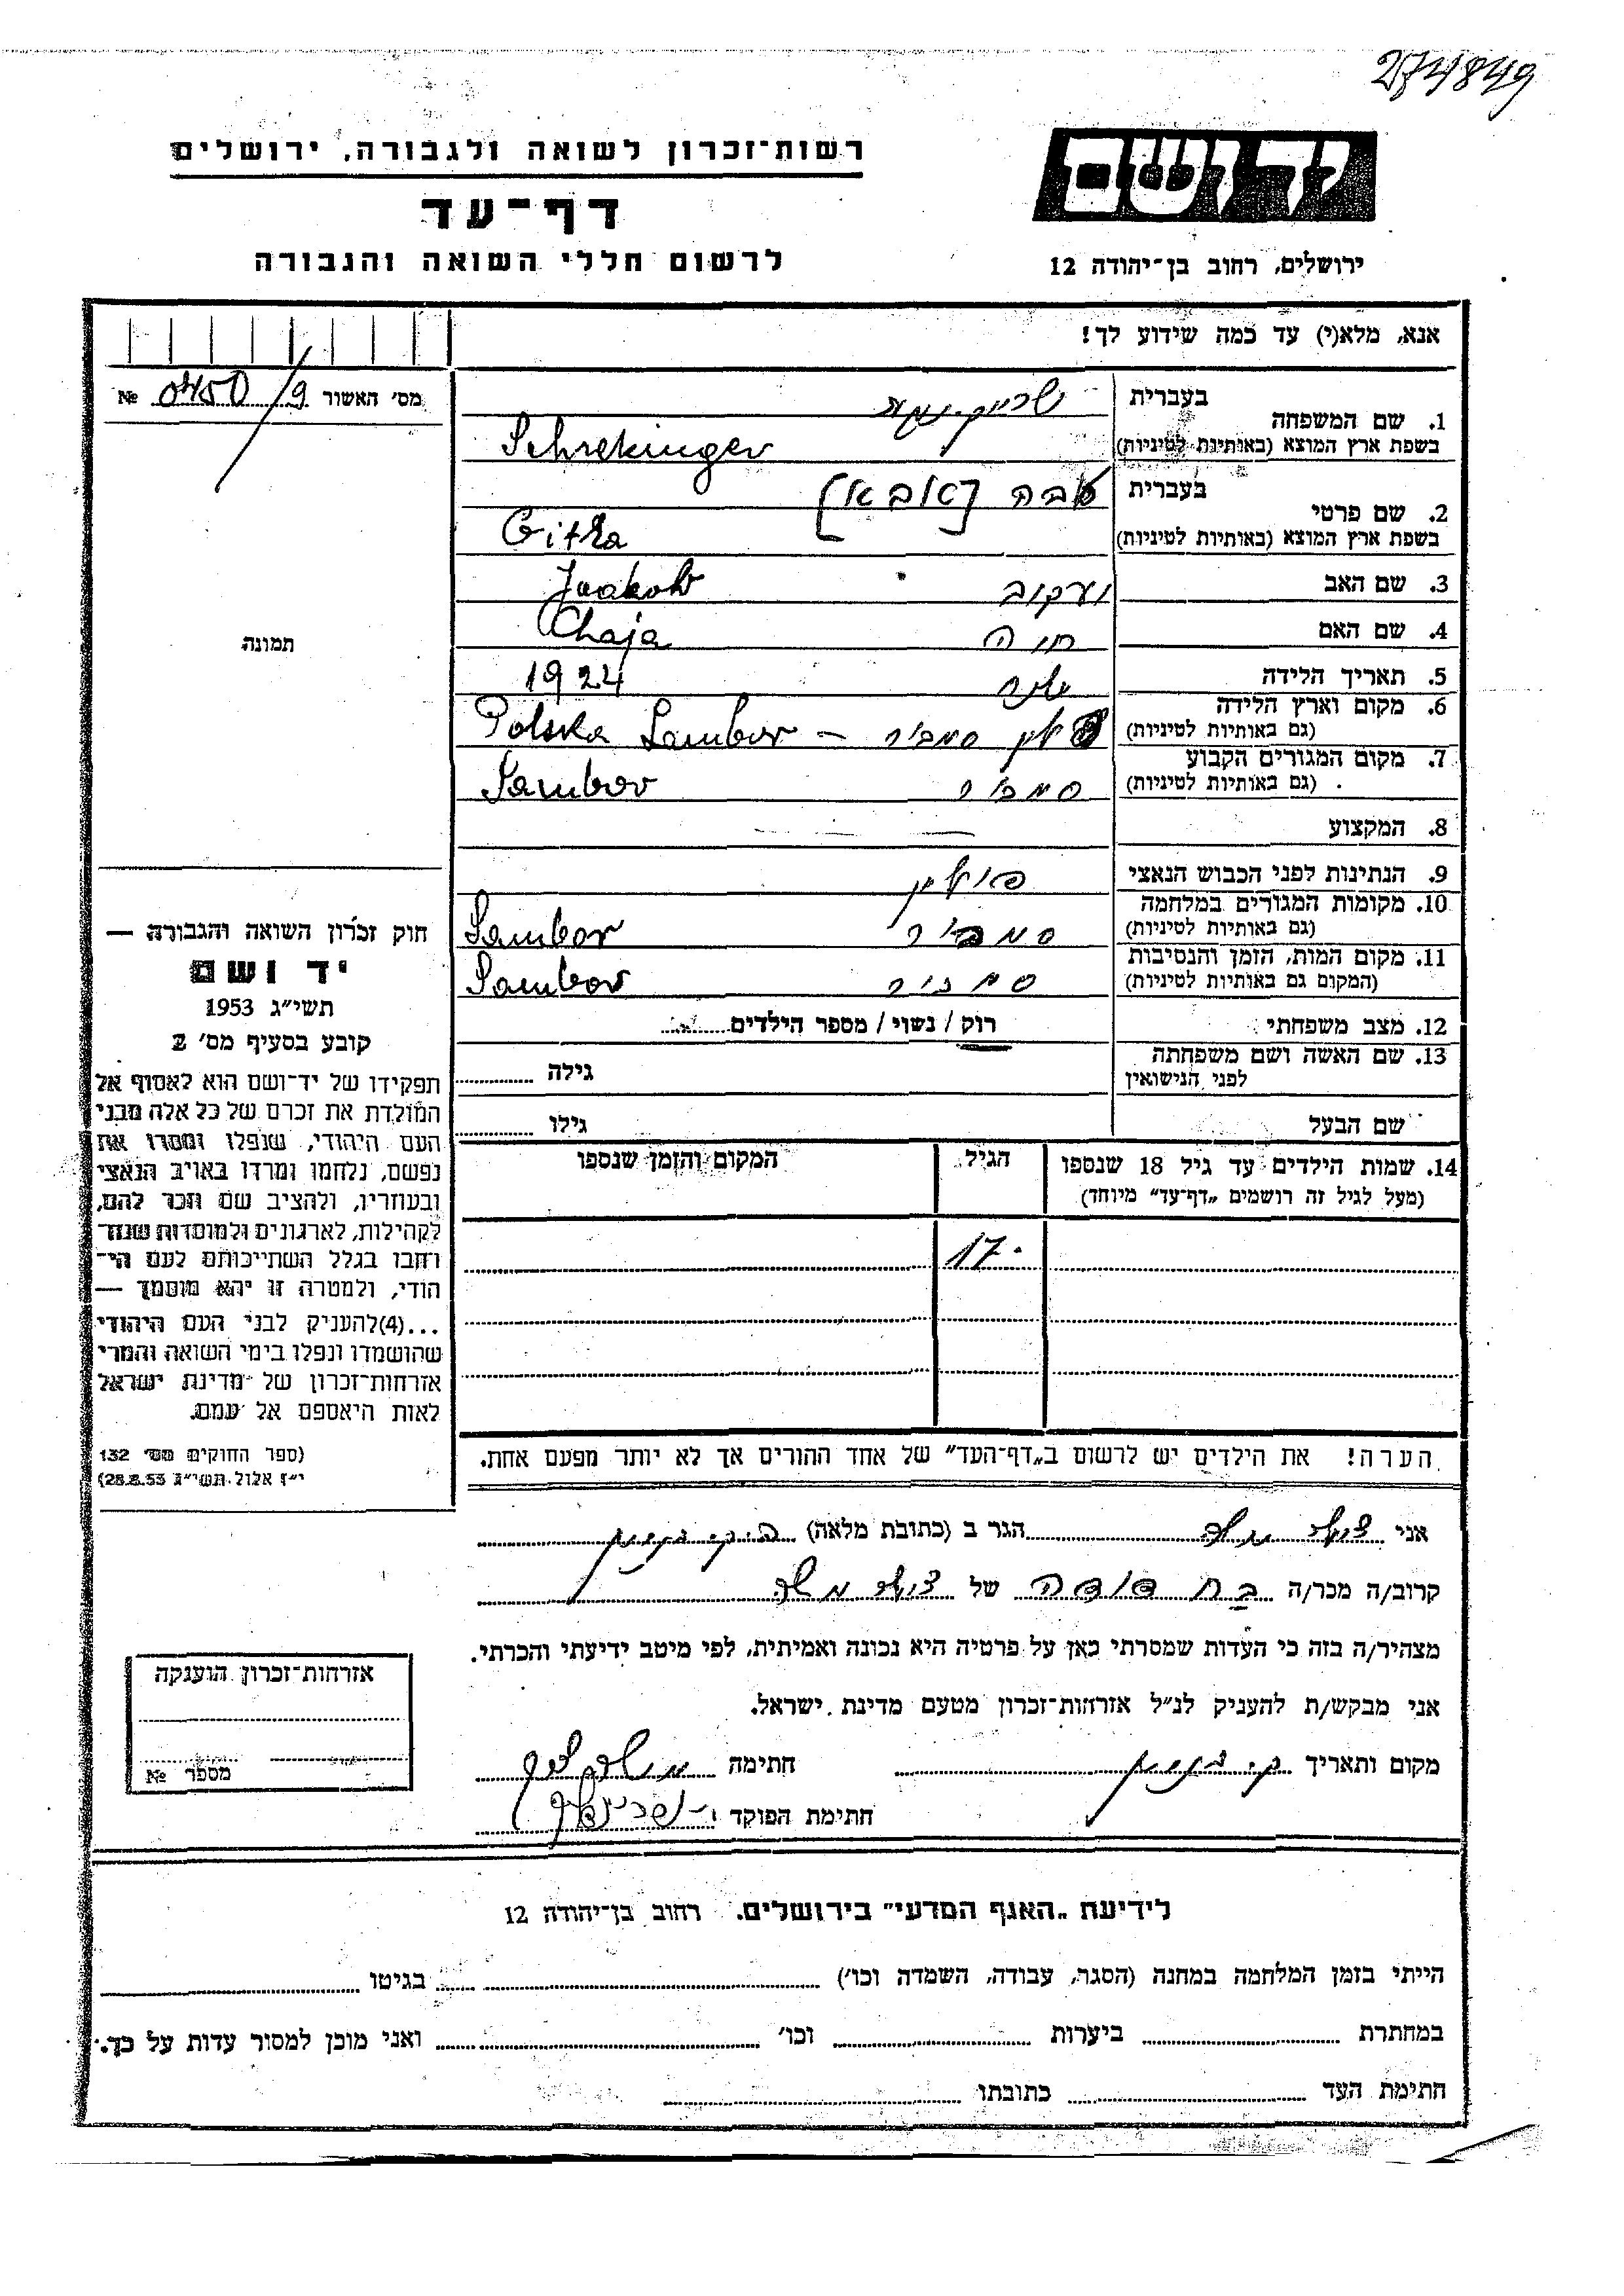 274849
רשות־זכרון לשואה ולגבורה, ירושלים
יד ושם
דף־עד
לרשום חללי השואה והגבורה
ירושלים, רחוב בן־יהודה 12
אנא, מלא(י) עד כמה שידוע לך!
מס׳ האשור 0450/9 №
1. שם המשפחה
בעברית
בשפת ארץ המוצא (באותיות לטיניות) Schrekinger
2. שם פרטי
בעברית
בשפת ארץ המוצא (באותיות לטיניות) Gitla
3. שם האב יעקוב Jaakob
4. שם האם חיה Chaja
5. תאריך הלידה 1924
6. מקום וארץ הלידה
(גם באותיות לטיניות) פולין סמבור – Polska Sambor
7. מקום המגורים הקבוע
(גם באותיות לטיניות) סמבור Sambor
8. המקצוע
9. הנתינות לפני הכבוש הנאצי פולין
10. מקומות המגורים במלחמה
(גם באותיות לטיניות) סמבור Sambor
11. מקום המות, הזמן והנסיבות
(המקום גם באותיות לטיניות) סמבור Sambor
12. מצב משפחתי רוק / נשוי / מספר הילדים
13. שם האשה ושם משפחתה
לפני הנישואין גילה
שם הבעל גילו
14. שמות הילדים עד גיל 18 שנספו
(מעל לגיל זה רושמים „דף־עד״ מיוחד)
הגיל
המקום והזמן שנספו
17
הערה! את הילדים יש לרשום ב„דף־העד״ של אחד ההורים אך לא יותר מפעם אחת.
תמונה
חוק זכרון השואה והגבורה —
יד ושם
תשי״ג 1953
קובע בסעיף מס׳ 2
תפקידו של יד־ושם הוא לאסוף אל
המולדת את זכרם של כל אלה מבני
העם היהודי, שנפלו ומסרו את
נפשם, נלחמו ומרדו באויב הנאצי
ובעוזריו, ולהציב שם וזכר להם,
לקהילות, לארגונים ולמוסדות שנח־
רבו בגלל השתייכותם לעם הי־
הודי, ולמטרה זו יהא מוסמך —
...(4)להעניק לבני העם היהודי
שהושמדו ונפלו בימי השואה והמרי
אזרחות־זכרון של מדינת ישראל
לאות היאספם אל עמם.
(ספר החוקים מס׳ 132
י״ז אלול תשי״ג 28.8.53)
אני הגר ב (כתובת מלאה)
קרוב/ה מכר/ה בת דודה של
מצהיר/ה בזה כי העדות שמסרתי כאן על פרטיה היא נכונה ואמיתית, לפי מיטב ידיעתי והכרתי.
אני מבקש/ת להעניק לנ״ל אזרחות־זכרון מטעם מדינת ישראל.
מקום ותאריך חתימה
חתימת הפוקד
אזרחות־זכרון הוענקה
מספר №
לידיעת „האגף המדעי״ בירושלים. רחוב בן־יהודה 12
הייתי בזמן המלחמה במחנה (הסגר, עבודה, השמדה וכו׳) בגיטו
במחתרת ביערות וכו׳ ואני מוכן למסור עדות על כך.
חתימת העד כתובתו